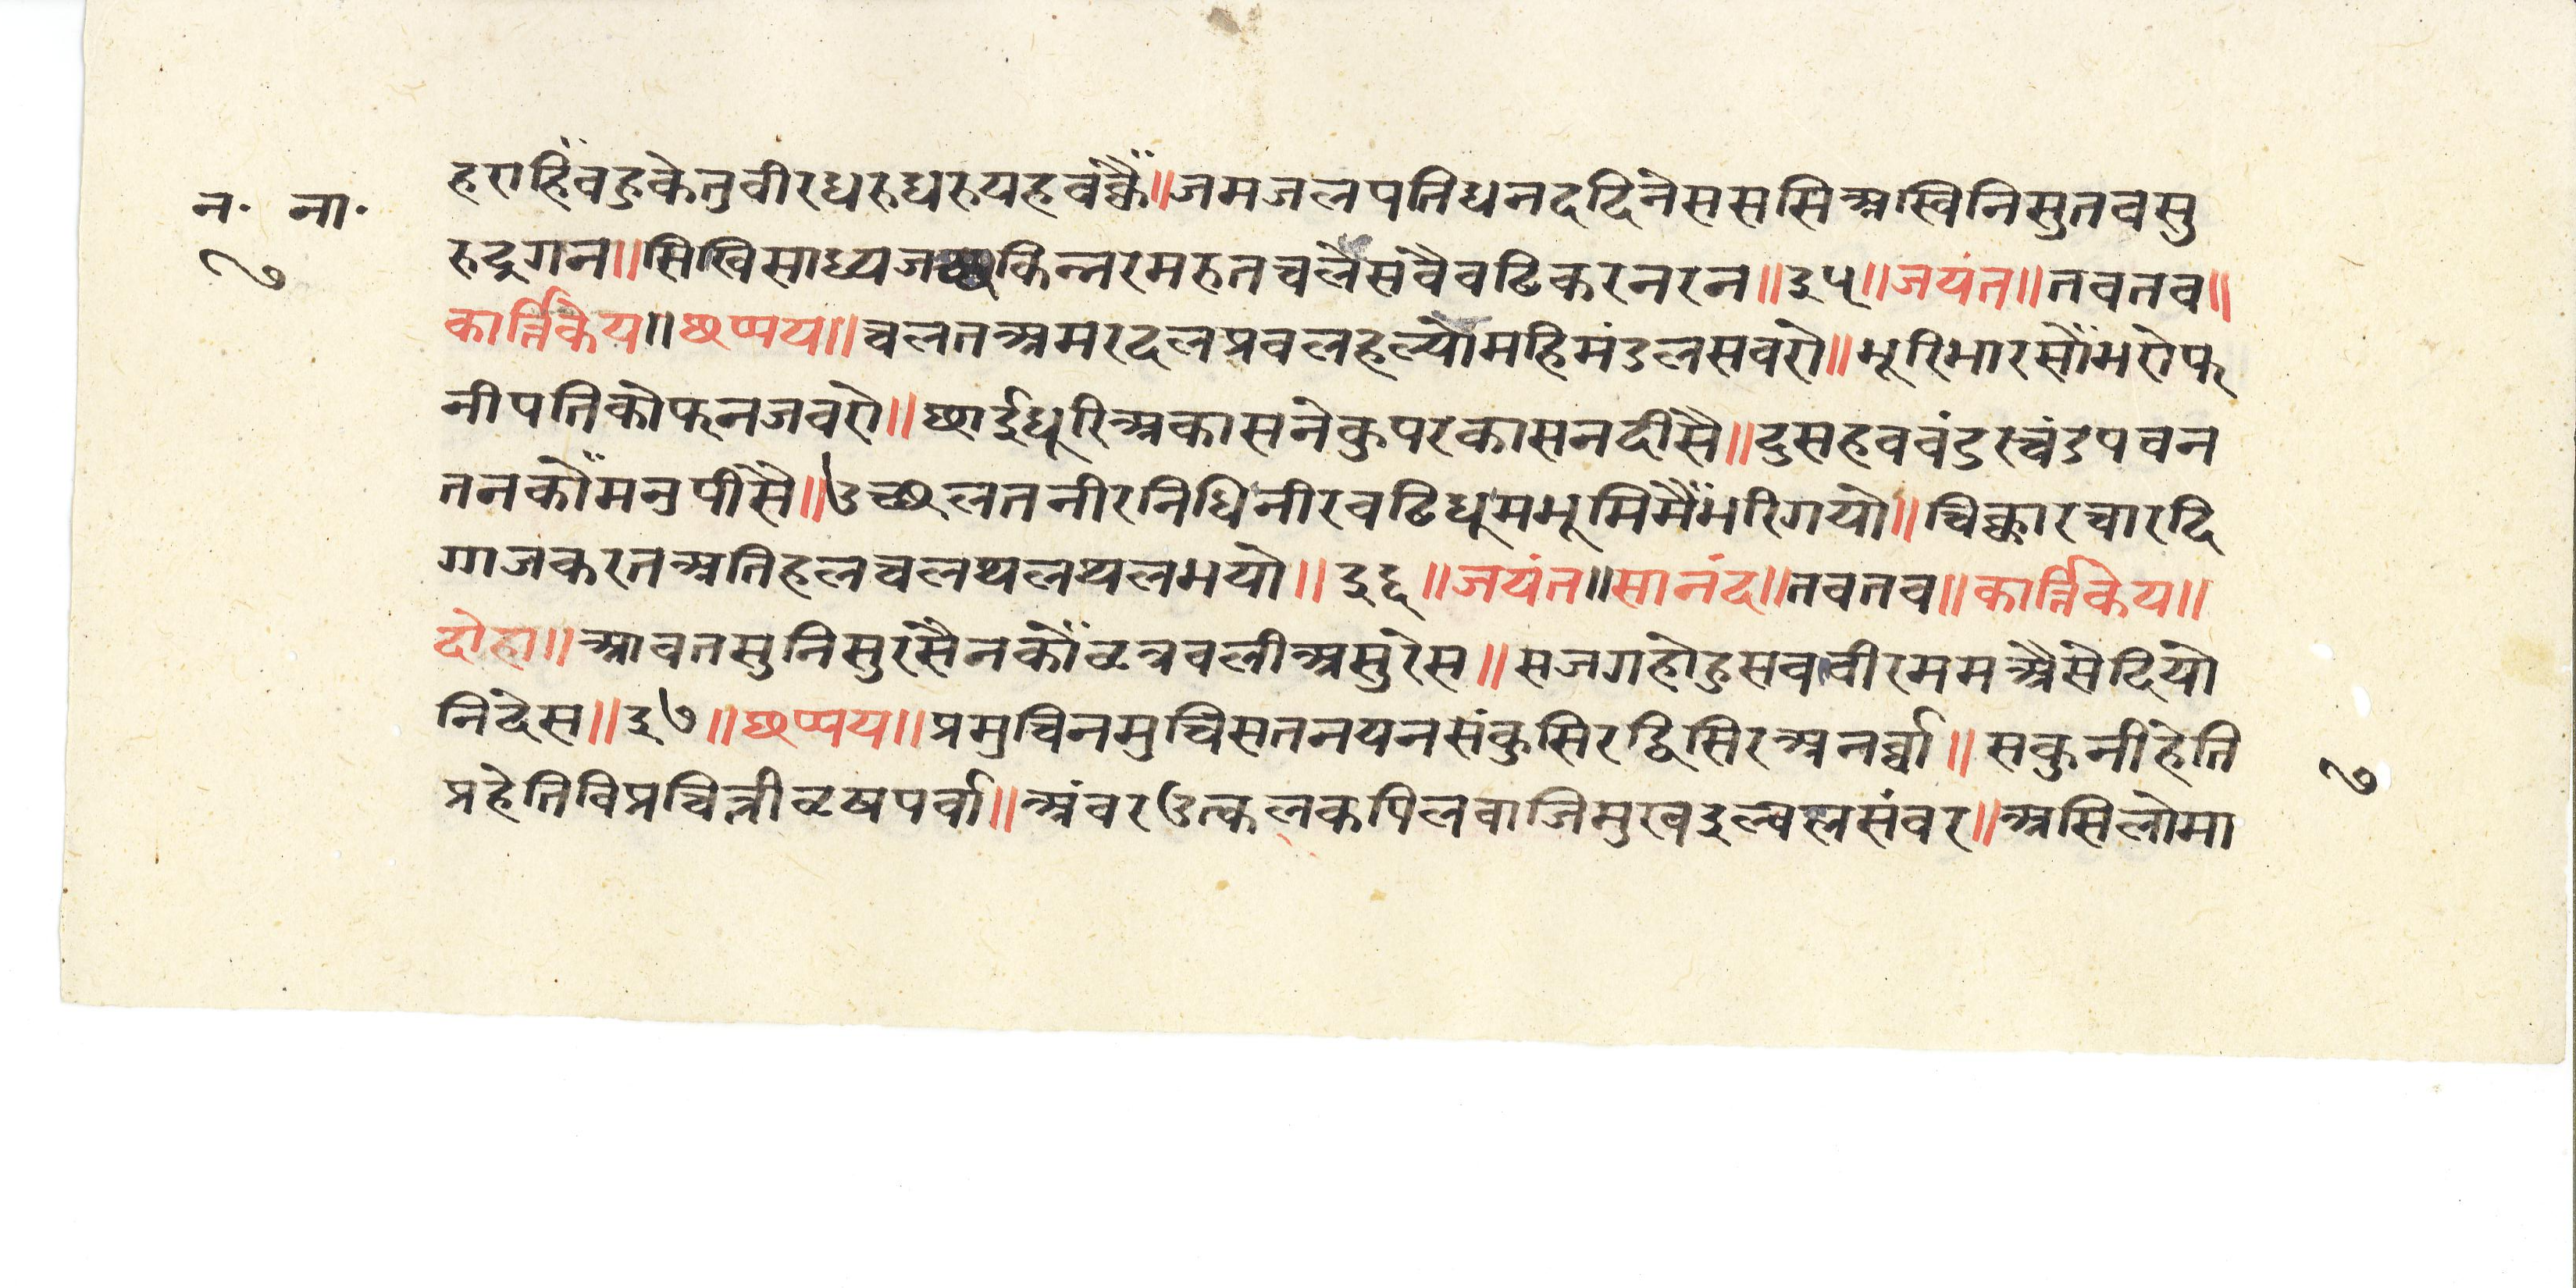 न॰ ना॰
७
हराहिंवहुकेतुवीरधरुधरुयहवंक्कैं॥जमजलपतिधनददिनेससससिअस्विनिसुतवसु
रुद्रगन॥सिखिसाध्यज किन्नरमरुतचलैसवैवढिकरनरन॥३५॥जयंत॥तवतव॥
कार्त्तिकेय॥छप्पय॥चलतअमरदलप्रवलहल्योमहिमंडलसवरो॥भूरिभारसोंभरोफ
नीपतिकोफनजवरो॥छाईधूरिअकासनेकुपरकासनदीसै॥दुसहववंडरचंडपवन
तनकोंमनुपीसै॥उच्छलतनीरनिधिनीरवढिधूमभूमिमैंभरिगयो॥चिक्कारचारदि
गाजकरतअतिहलचलथलथलभयो॥३६॥जयंत॥सानंद॥तवतव॥कार्त्तिकेय॥
दोहा॥आवतसुनिसुरसैनकोंवृत्रवलीअसुरेस॥सजगहोहुसववीरममअैसेदियो
निदेस॥३७॥छप्पय॥प्रमुचिनमुचिसतनयनसंकुसिरद्विसिरअनर्व्वा॥सकुनीहेति
प्रहेतिविप्रचित्तीवृषपर्वा॥अंवरउत्कलकपिलवाजिमुखइल्वलसंवर॥असिलोमा
७